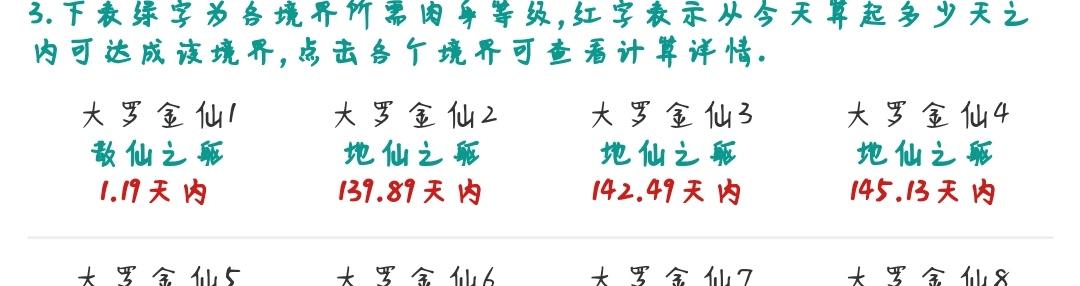 3.下表绿字为各境界所需肉身等级,红字表示从今天算起多少天之
内可达成该境界,点击各个境界可查看计算详情.
大罗金仙1 大罗金仙2 大罗金仙3 大罗金仙4
散仙之躯 地仙之躯 地仙之躯 地仙之躯
1.19天内 139.89天内 142.49天内 145.13天内
大罗金仙5 大罗金仙6 大罗金仙7 大罗金仙8